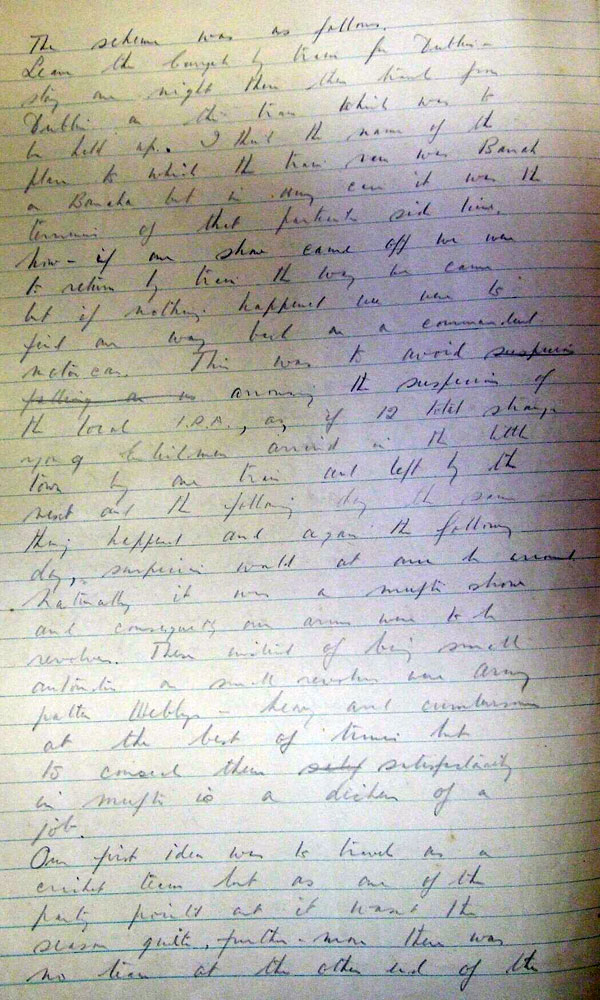 The scheme was as follows.
Leave the Curragh by train for Dublin –
stay one night there then travel from
Dublin on the train which was to
be held up. I think the name of the
place to which the train ran was Banah
or Banaha but in any case it was the
terminus of that particular side line.
Now – if our show came off we were
to return by train the way we came
but if nothing happened we were to
find our way back on a commandeered
motor car. This was to avoid suspicion
falling on us arousing the suspicion of
the local I.R.A., as, if 12 total strange
young Englishmen arrived in the little
town by one train and left by the
next and the following day the same
thing happened and again the following
day, suspicion would at once be aroused.
Naturally it was a mufti show
and consequently our arms were to be
revolvers. These instead of being small
automatics or small revolvers were army
pattern Webbys – heavy and cumbersome
at the best of times but
to conceal them satisfactorily
in mufti is a dickens of a
job.
Our first idea was to travel as a
cricket team but as one of the
party pointed out it wasn't the
season quite, further-more there was
no team at the other end of the